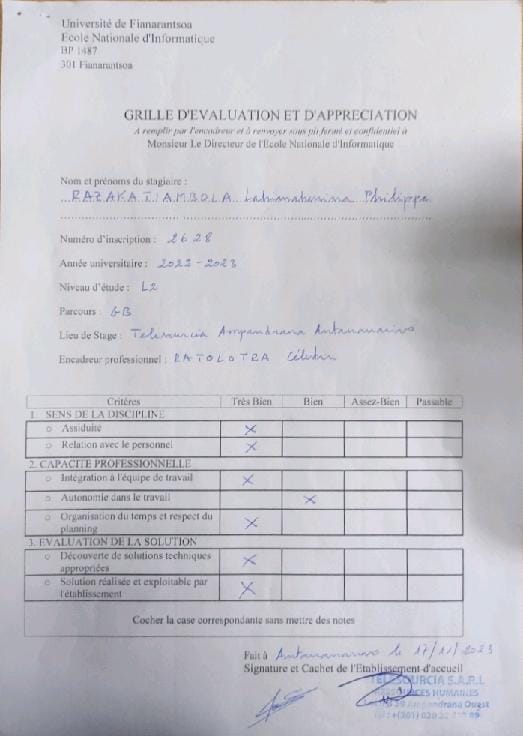 Université de Fianarantsoa
Ecole Nationale d'Informatique
BP 1487
301 Fianarantsoa
GRILLE D'EVALUATION ET D'APPRECIATION
A remplir par l'encadreur et à renvoyer sous pli fermé et confidentiel à
Monsieur Le Directeur de l'Ecole Nationale d'Informatique
Nom et prénoms du stagiaire :
RAZAKATIAMBOLA Philippe
Numéro d'inscription : 2628
Année universitaire : 2022-2023
Niveau d'étude : L2
Parcours : GB
Lieu de Stage : Telesourcia Ampandrana Antananarivo
Encadreur professionnel : RATOLOTRA Célestin
Critères Très Bien Bien Assez-Bien Passable
1. SENS DE LA DISCIPLINE
o Assiduité X
o Relation avec le personnel X
2. CAPACITE PROFESSIONNELLE
o Intégration à l'équipe de travail X
o Autonomie dans le travail X
o Organisation du temps et respect du
planning X
3. EVALUATION DE LA SOLUTION
o Découverte de solutions techniques
appropriées X
o Solution réalisée et exploitable par
l'établissement X
Cocher la case correspondante sans mettre des notes
Fait à Antananarivo le 17/11/2023
Signature et Cachet de l'Etablissement d'accueil
TELESOURCIA S.A.R.L
RESSOURCES HUMAINES
Ampandrana Ouest